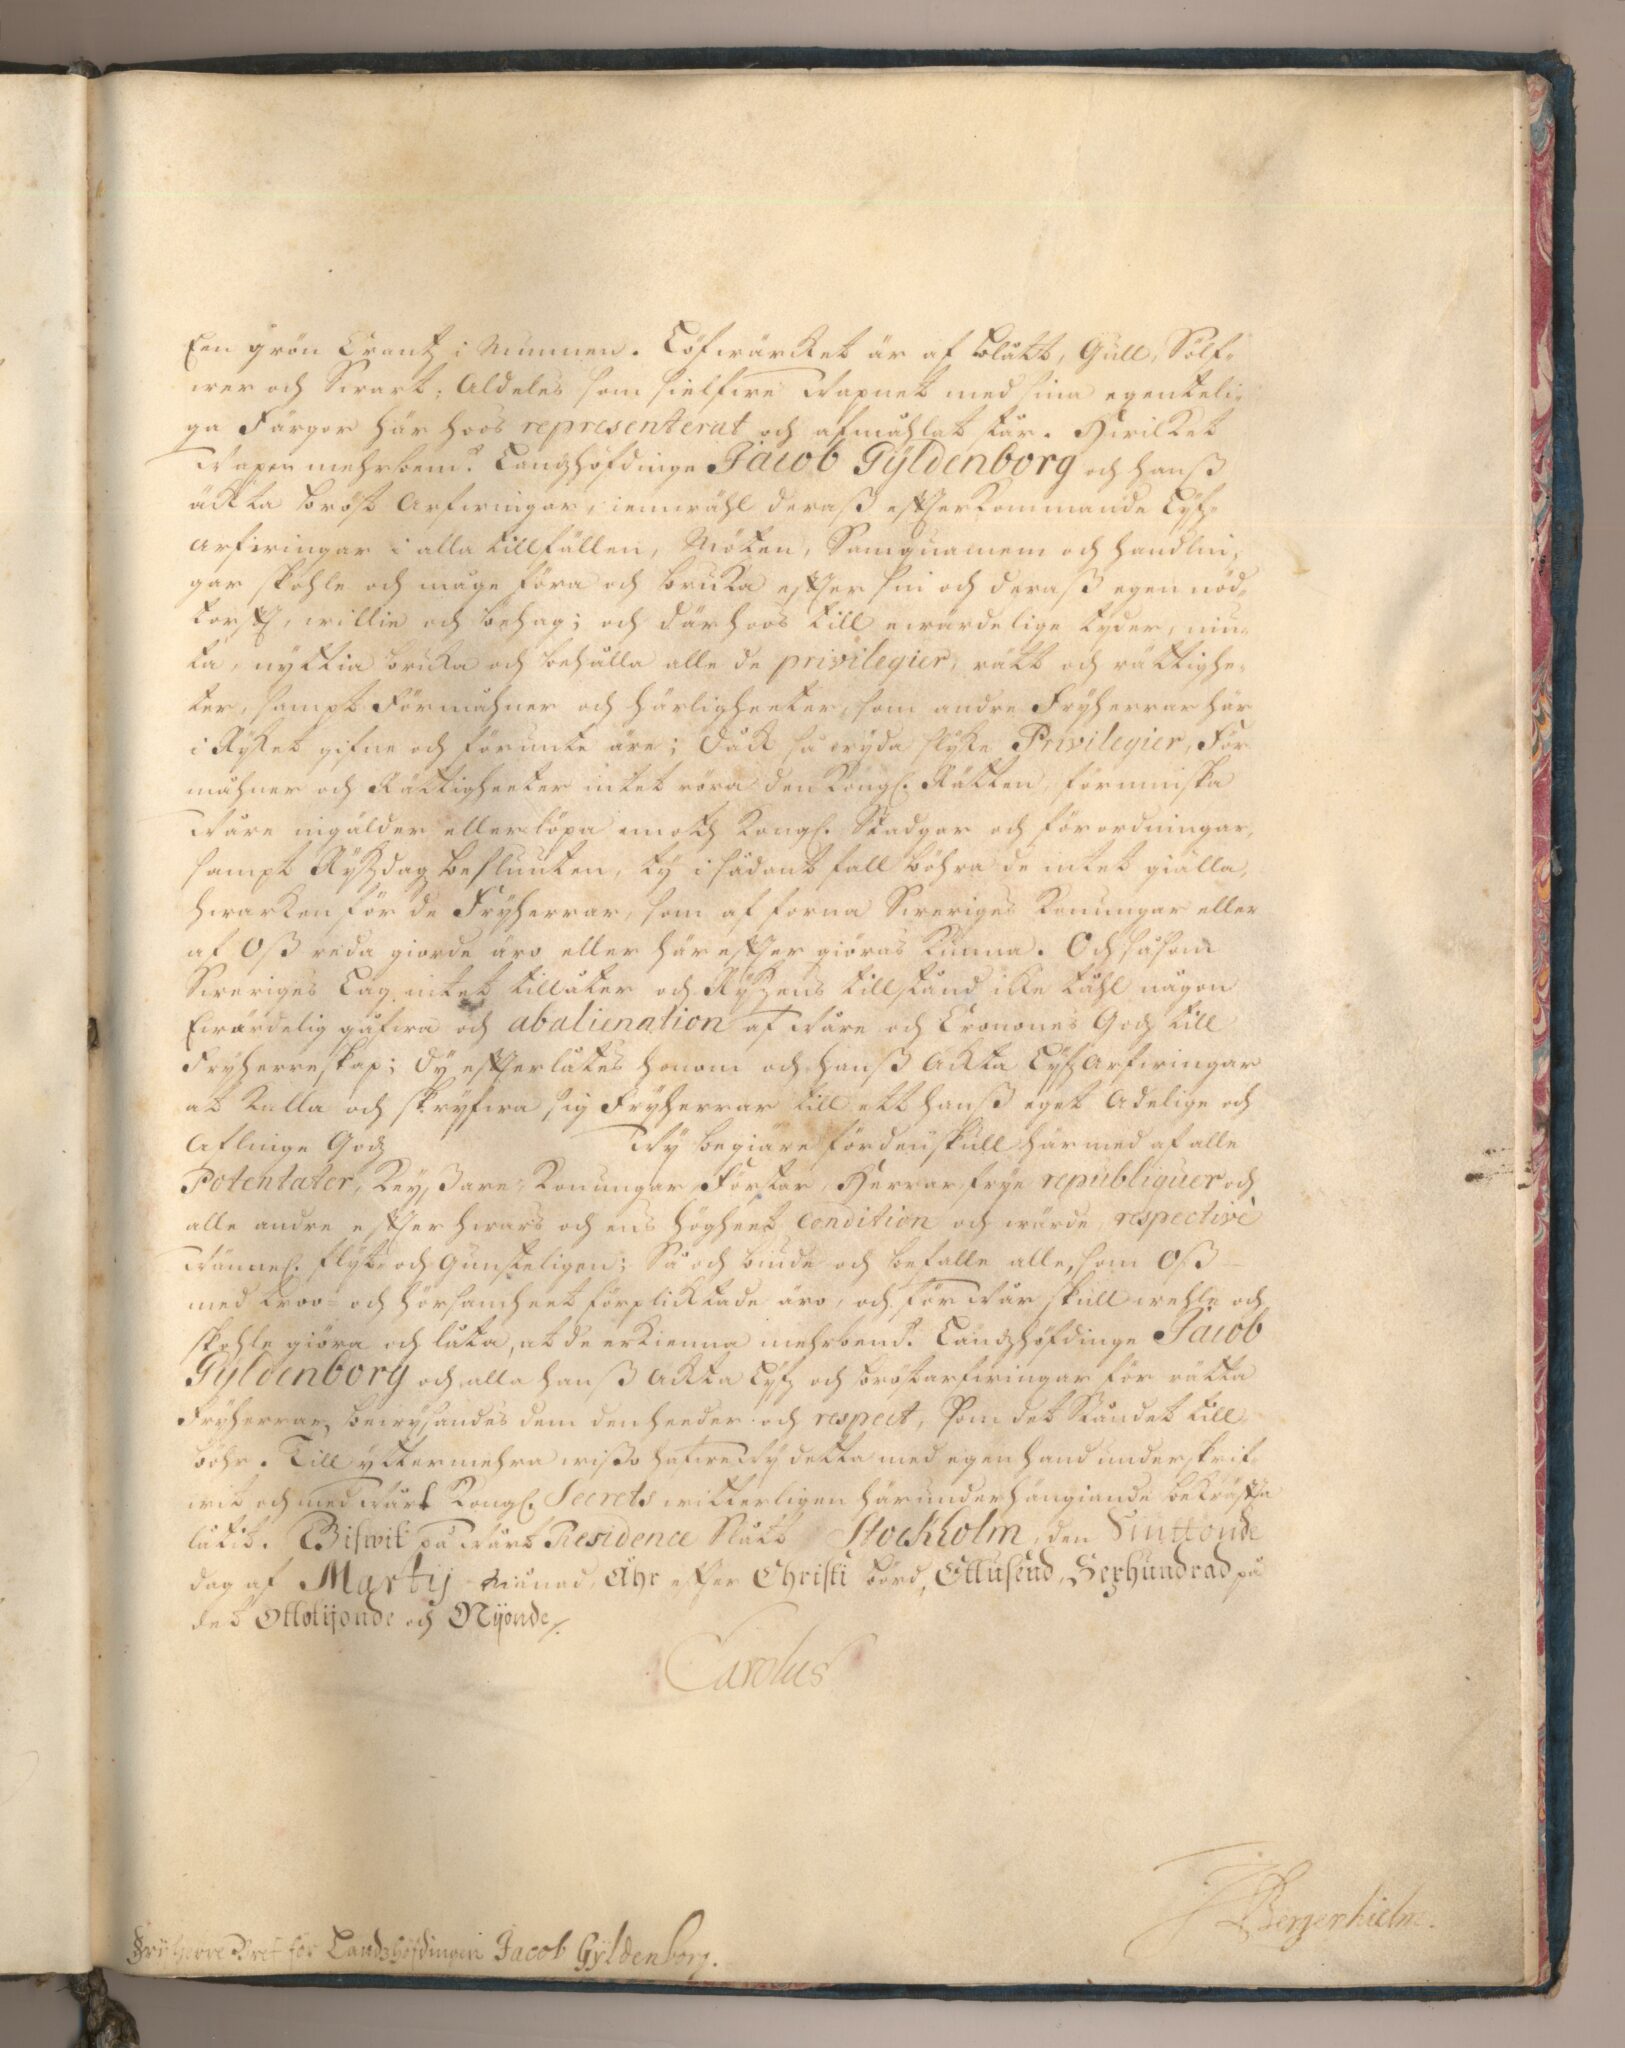 Een grön Crantz i Munnen. Löfwärcket är af blått, Gull, Sölf-
wer och Swart; Aldeles som sielfwe Wapnet med sina egenteli-
ga Färgor här hoos representerat och afmåhlat står. Hwilket
Wapen mehrbem:te Landzhöfdinge Jacob Gyldenborg och hanß
ächta bröst Arfwingar, iemwähl deraß effterkommande Lyfz-
arfwingar i alla tillfällen, Möten, Samquämem och handlin-
gar skohle och måge föra och bruka effter sin och deraß egen nöd-
torfft, willie och behag; och därhoos till ewärdelige tyder, niu-
ta, nyttia bruka och behålla alle de privilegier, rätt och rättighe-
ter, sampt Förmåhner och härligheeter, som andre Fryherrar här
i Ryket gifne och förunte äre; Däck så wyda slyke Privilegier, För-
måhner och Rättigheeter intet röra den Kongl. Rätten, förminska
Wåre ingälder eller löpa emoth Kongl. Stadgar och förordningar,
sampt Rykzdagz besluuten, ty i sådant fall böhra de intet giälla,
hwarken för de Fryherrar, som af forna Sweriges Konungar eller
af Oß reda giorde äro eller här effter giöras kunna. Och såsom
Sweriges Lag intet tillåter och Rykzens tillstånd icke tåhl någon
Ewärdelig gåfwa och abalienation af Wåre och Cronones Godz till
Fryherreskap; Dy effterlåtes honom och hanß Ächta Lyfz Arfwingar
at kalla och skryfwa sig Fryherrar till ett hanß eget Adelige och
Aflinge Godz Wy begiäre fördenskull här med af alle
Potentater, Keyßare, Konungar, Förstar, Herrar, frye republiquer och
alle andre effter hwars och ens högheet, condition och wärde, respectivè
Wännel. flyt- och Gunsteligen; Så och biude och befalle alle, som Oß
med troo- och hörsamheet förplicktade äro, och för Wår skull wehle och
skohle giöra och låta, at de erkienna mehrbem:te Landzhöfdinge Jacob
Gyldenborg och alla hanß Ächta Lyfz och bröstarfwingar för rätta
Fryherrar, bewysandes dem den heeder och respect, som det Ståndet till-
böhr. Till yttermehra wißo hafwe Wy detta med egen hand underskrif-
wit och med Wårt Kongl. Secrets witterligen här underhängiande bekräffta
låtit. Gifwit på Wårt Residence Slått Stockholm, den Siuttonde
dag af Martij Månad, Åhr effter Christi börd, Ettusend, Sexhundrad på
det Ottotijonde och Nyonde.
Carolus
J Bergenhielm.
Fryherre Bref för Landzhöfdingen Jacob Gyldenborg.